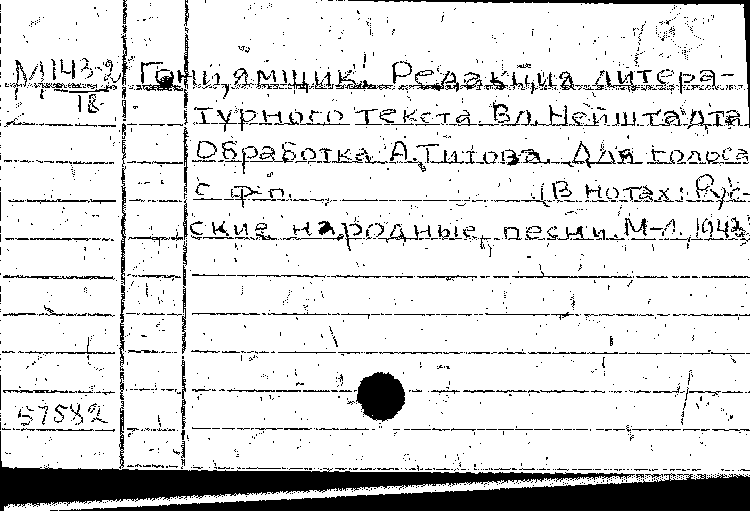 М 143-2
18
Гони, ямщик! Редакция литера-
турного текста Вл. Нейштадта
Обработка А. Титова. Для голоса
с ф-п. (В нотах: Рус-
ские народные песни. М-Л., 1943
57582